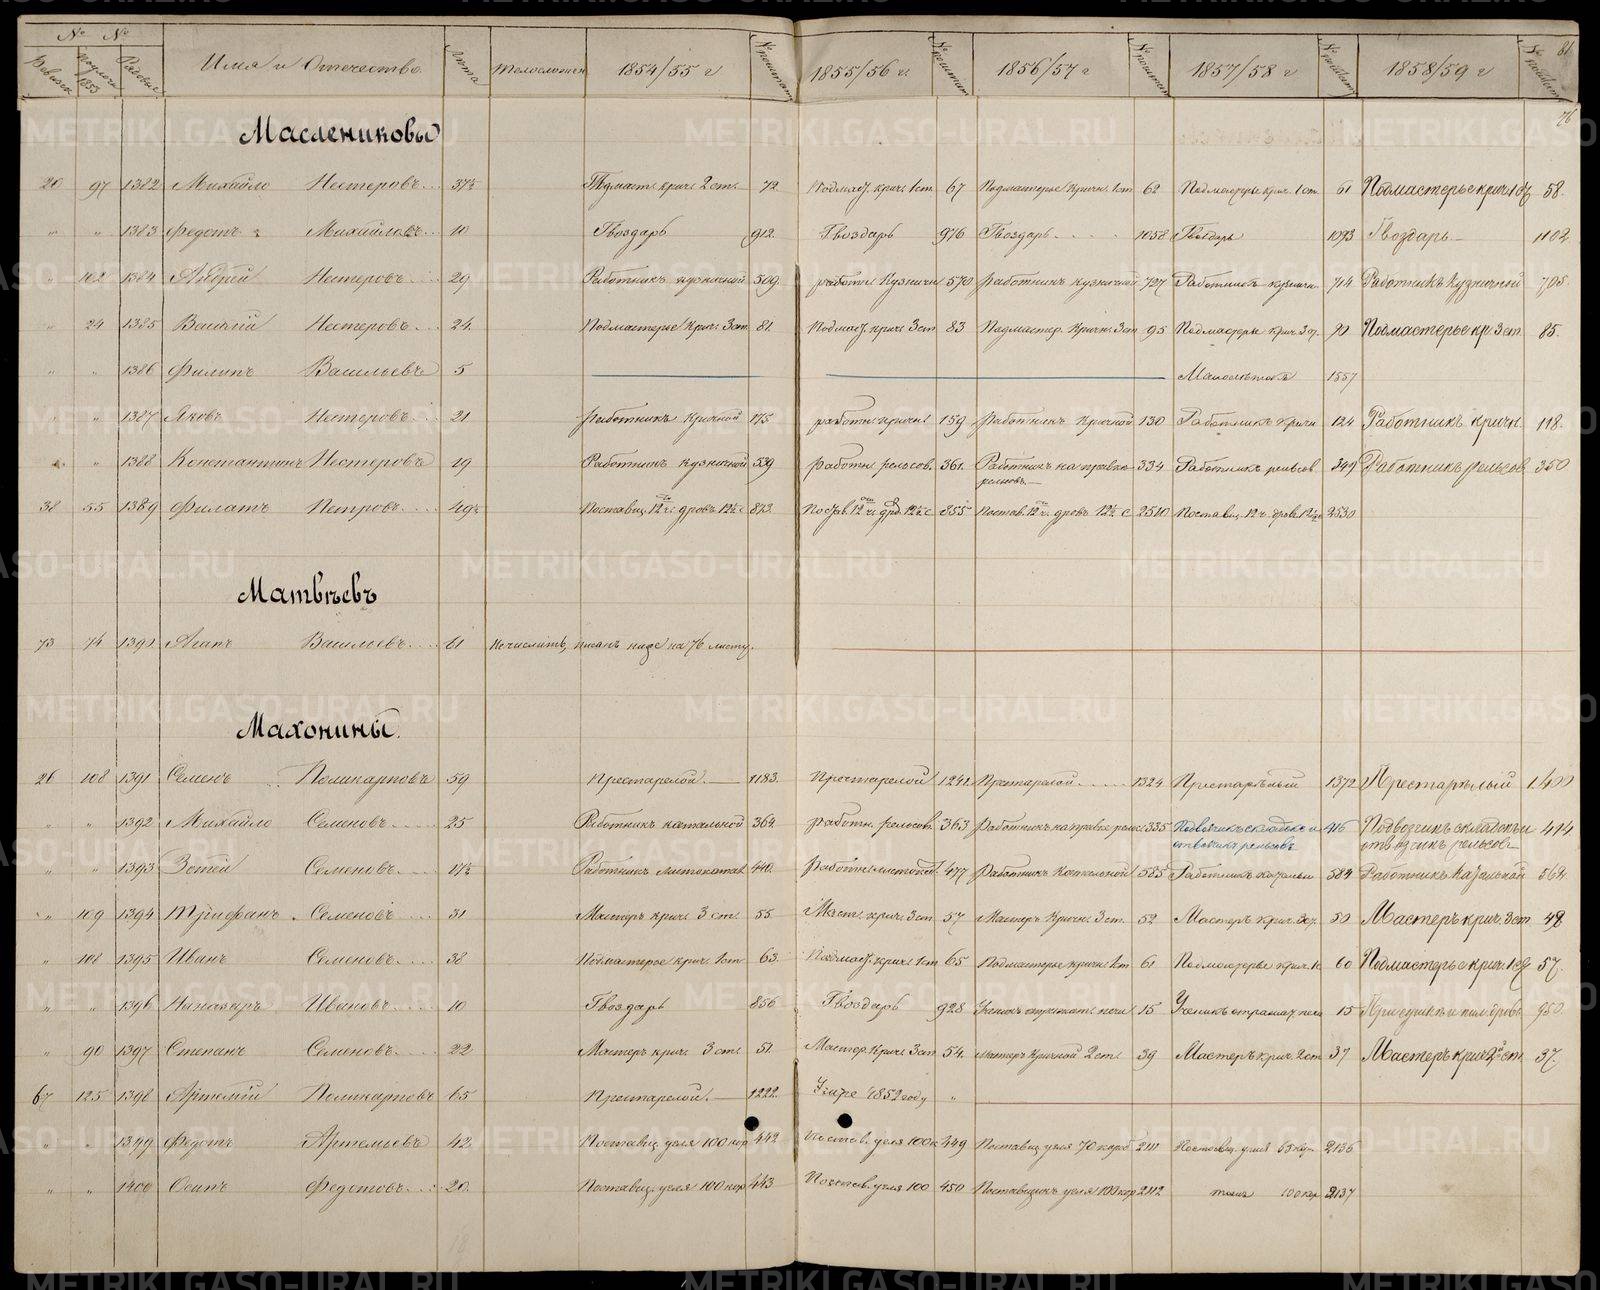 № №
Ревизск. Подлож. 1853 Рядовые Имя и Отечество. Лѣта Телосложен. 1854/55 г № поштат 1855/56 г. № поштат 1856/57 г № поштат 1857/58 г № поштат 1858/59 г № поштат 81
76
Маслениковы
20 97 1382 Михайло Нестеровъ 37½ Подмаст. крич. 2 ст. 72. Подмаст. крич. 1 ст. 67 Подмастерье кричн. 1 ст 62 Подмастерье крич. 1 ст. 61 Подмастерье крич 1 ст 58.
" " 1383 Федотъ Михайловъ 10 Гвоздарь 912. Гвоздарь 976 Гвоздарь 1058 Гвоздарь 1093 Гвоздарь 1102
" 102 1384 Нестеровъ 29 Работникъ кузничной 509. работн. Кузничн 570 работникъ кузничной 727 Работникъ кузничн. 714 Работникъ Кузничный 705.
" 24 1385 Василій Нестеровъ 24. Подмастерье крич. 3 ст. 81. Подмаст. крич. 3 ст 83 Подмастер. Кричн. 3 ст 95 Подмастерье крич 3 ст. 90 Подмастерье кр. 3 ст. 85.
" " 1386 Филипъ Васильевъ 5 Малолѣтокъ 1557
" " 1387 Яковъ Нестеровъ 21 Работникъ кричной 175. работн. кричн. 159 Работникъ Кричной 130 Работникъ кричн 124 Работникъ кричн. 118.
" " 1388 Константинъ Нестеровъ 19 Работникъ кузничной 539 работн. рельсов. 361. Работникъ на правке рельсовъ. 334 Работникъ рельсов 349 Работникъ рельсов 350
38 55 1389 Филатъ Петровъ 49½ Поставщ. 12 ч. дровъ 12½ с 873. Постав. 12 ч. дров 12½ с 855 Постав. 12 ч. дровъ 12½ с 2510 Поставщ. 12 ч. дров. 12½ 2530
Матвѣевъ
73 74 1390 Агапъ Васильевъ 61 Не числить, писанъ ниже на 76 листу.
Махонины.
26 108 1391 Семенъ Поликарповъ 59 Престарелой. 1183. Престарелой 1241. Престарелой 1324 Престарѣлый 1372 Престарѣлый 1400
" " 1392 Михайло Семеновъ 25 Работникъ катальной 364. работн. рельсов. 363 Работникъ на правке рельс. 335 Подвозчикъ складокъ и отвозчикъ рельсовъ. 416 Подвозчикъ складокъ и отвозчикъ рельсов 414
" " 1393 Зотей Семеновъ 17½ Работникъ листокатал 440. Работн. листокат. 477 Работникъ Катальной 585 Работникъ катальн 584 Работникъ Катальной 564.
" 109 1394 Трифанъ Семеновъ 31 Мастеръ крич. 3 ст. 55. Маст. крич. 3 ст 57 Мастеръ Кричн. 3 ст. 52 Мастеръ крич. 3 ст. 50 Мастеръ крич. 3 ст 48.
" 108 1395 Иванъ Семеновъ 38 Подмастерье крич. 1 ст 63. Подмаст. крич. 1 ст 65 Подмастерье кричн. 1 ст 61 Подмастерье крич. 1 с 60 Подмастерье крич. 1 ст 57.
" " 1396 Ивановъ 10 Гвоздарь 856 Гвоздарь 928 Ученикъ отражат. печи 15 Ученикъ отражат печи 15 950.
" 90 1397 Степанъ Семеновъ 22 Мастеръ крич. 3 ст. 51. Мастер. Крич. 3 ст 54. Мастеръ Кричной 2 ст. 39 Мастеръ крич. 2 ст 37 Мастеръ крич 2й ст. 37.
67 125 1398 Артемій Поликарповъ 65 Престарелой. 1222. Умре 1852 году "
" " 1399 Федотъ Артемьевъ 42. Поставщ. уголя 100 кор 442. Постав. угля 100 к 449 Поставщ. угля 70 короб 2111 Поставщ. угля 65 кор. 2136
" " 1400 Осипъ Федотовъ 20. Поставщ. уголя 100 кор 443 Постав. угля 100 450 Поставщикъ угля 100 кор 2112 тоже 100 кор. 2137
METRIKI.GASO-URAL.RU